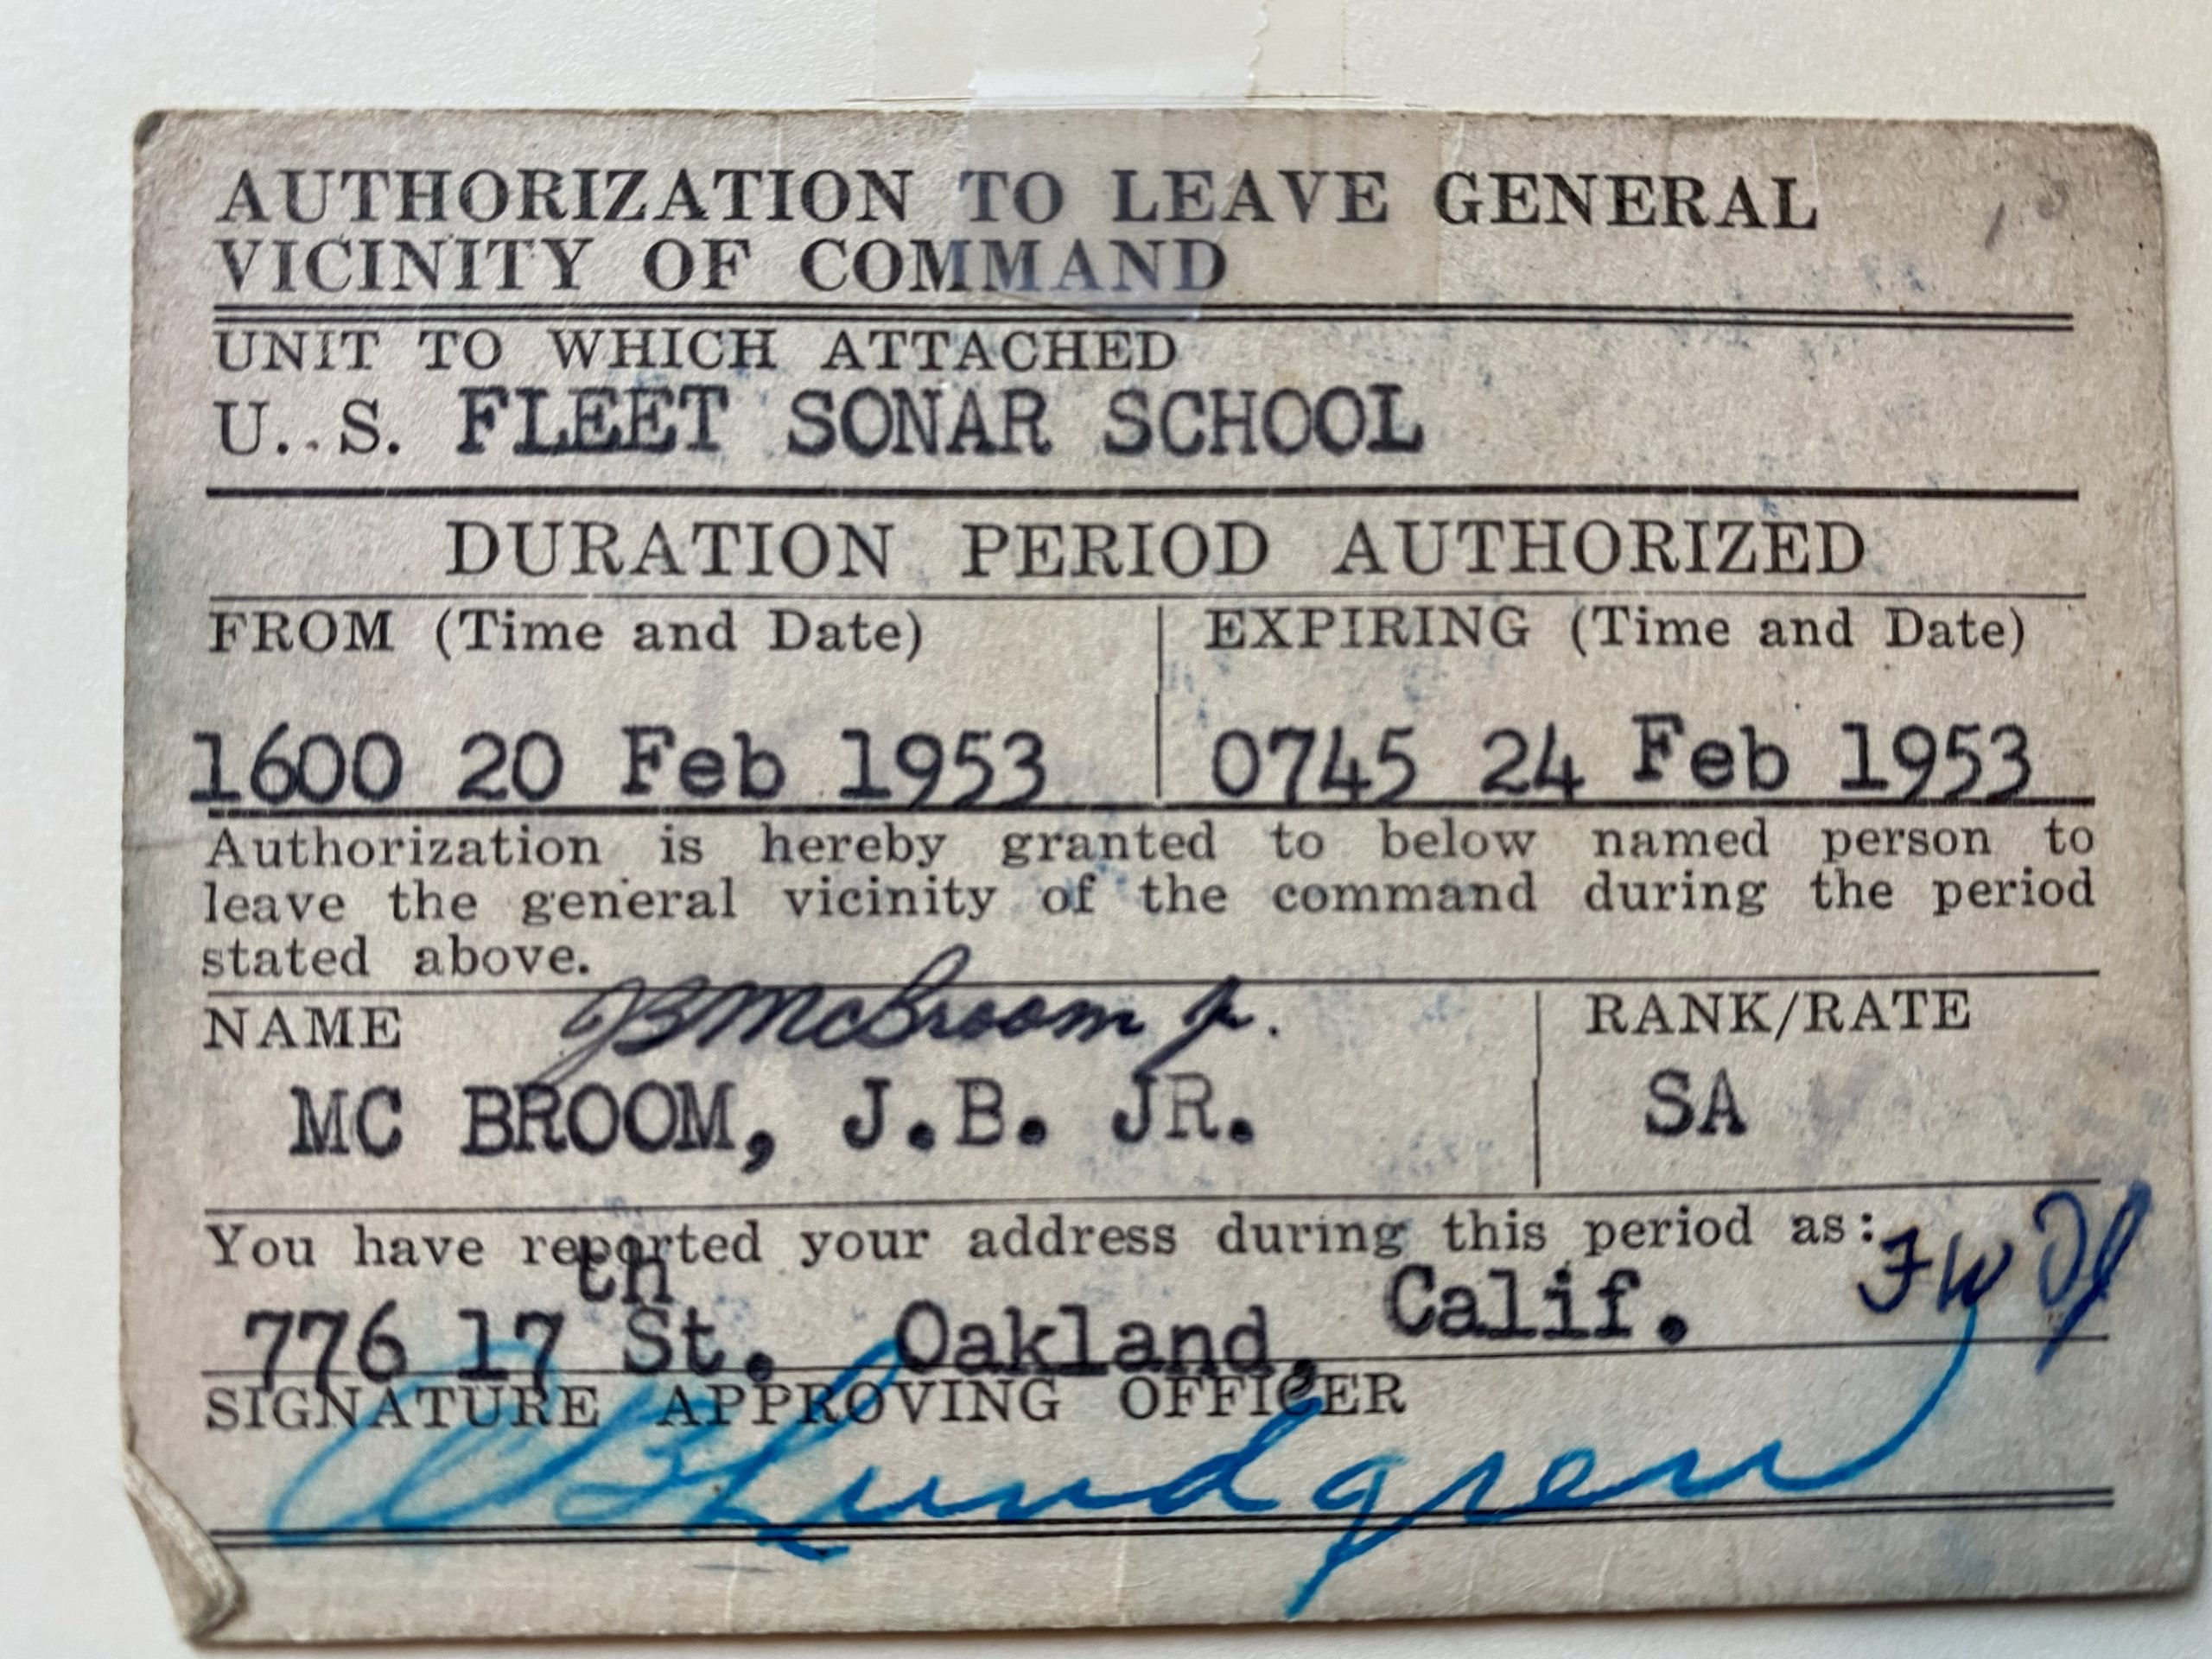 AUTHORIZATION TO LEAVE GENERAL
VICINITY OF COMMAND
UNIT TO WHICH ATTACHED
U. S. FLEET SONAR SCHOOL
DURATION PERIOD AUTHORIZED
FROM (Time and Date) EXPIRING (Time and Date)
1600 20 Feb 1953 0745 24 Feb 1953
Authorization is hereby granted to below named person to
leave the general vicinity of the command during the period
stated above.
NAME JBMcBroom Jr. RANK/RATE
MC BROOM, J.B. JR. SA
You have reported your address during this period as:
776 17th St. Oakland, Calif.
SIGNATURE APPROVING OFFICER
Lundgren